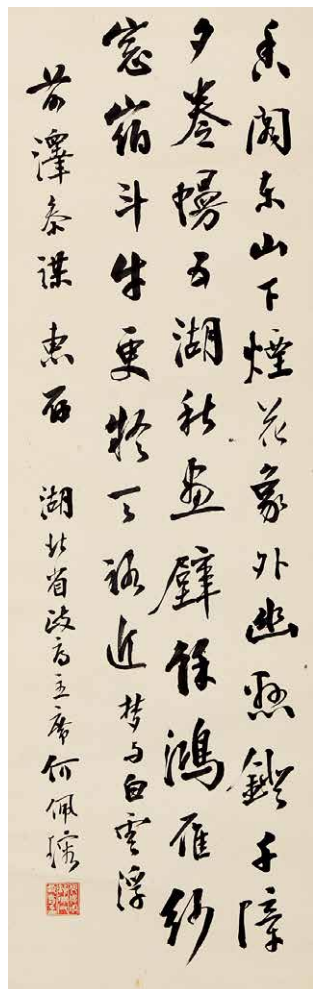 香閣東山下煙花象外幽懸鐙千障
夕卷幔五湖秋畫壁餘鴻雁紗
窓宿斗牛更疑天路近夢与白雲浮
前澤参謀 惠存 湖北省政府主席何佩瑢